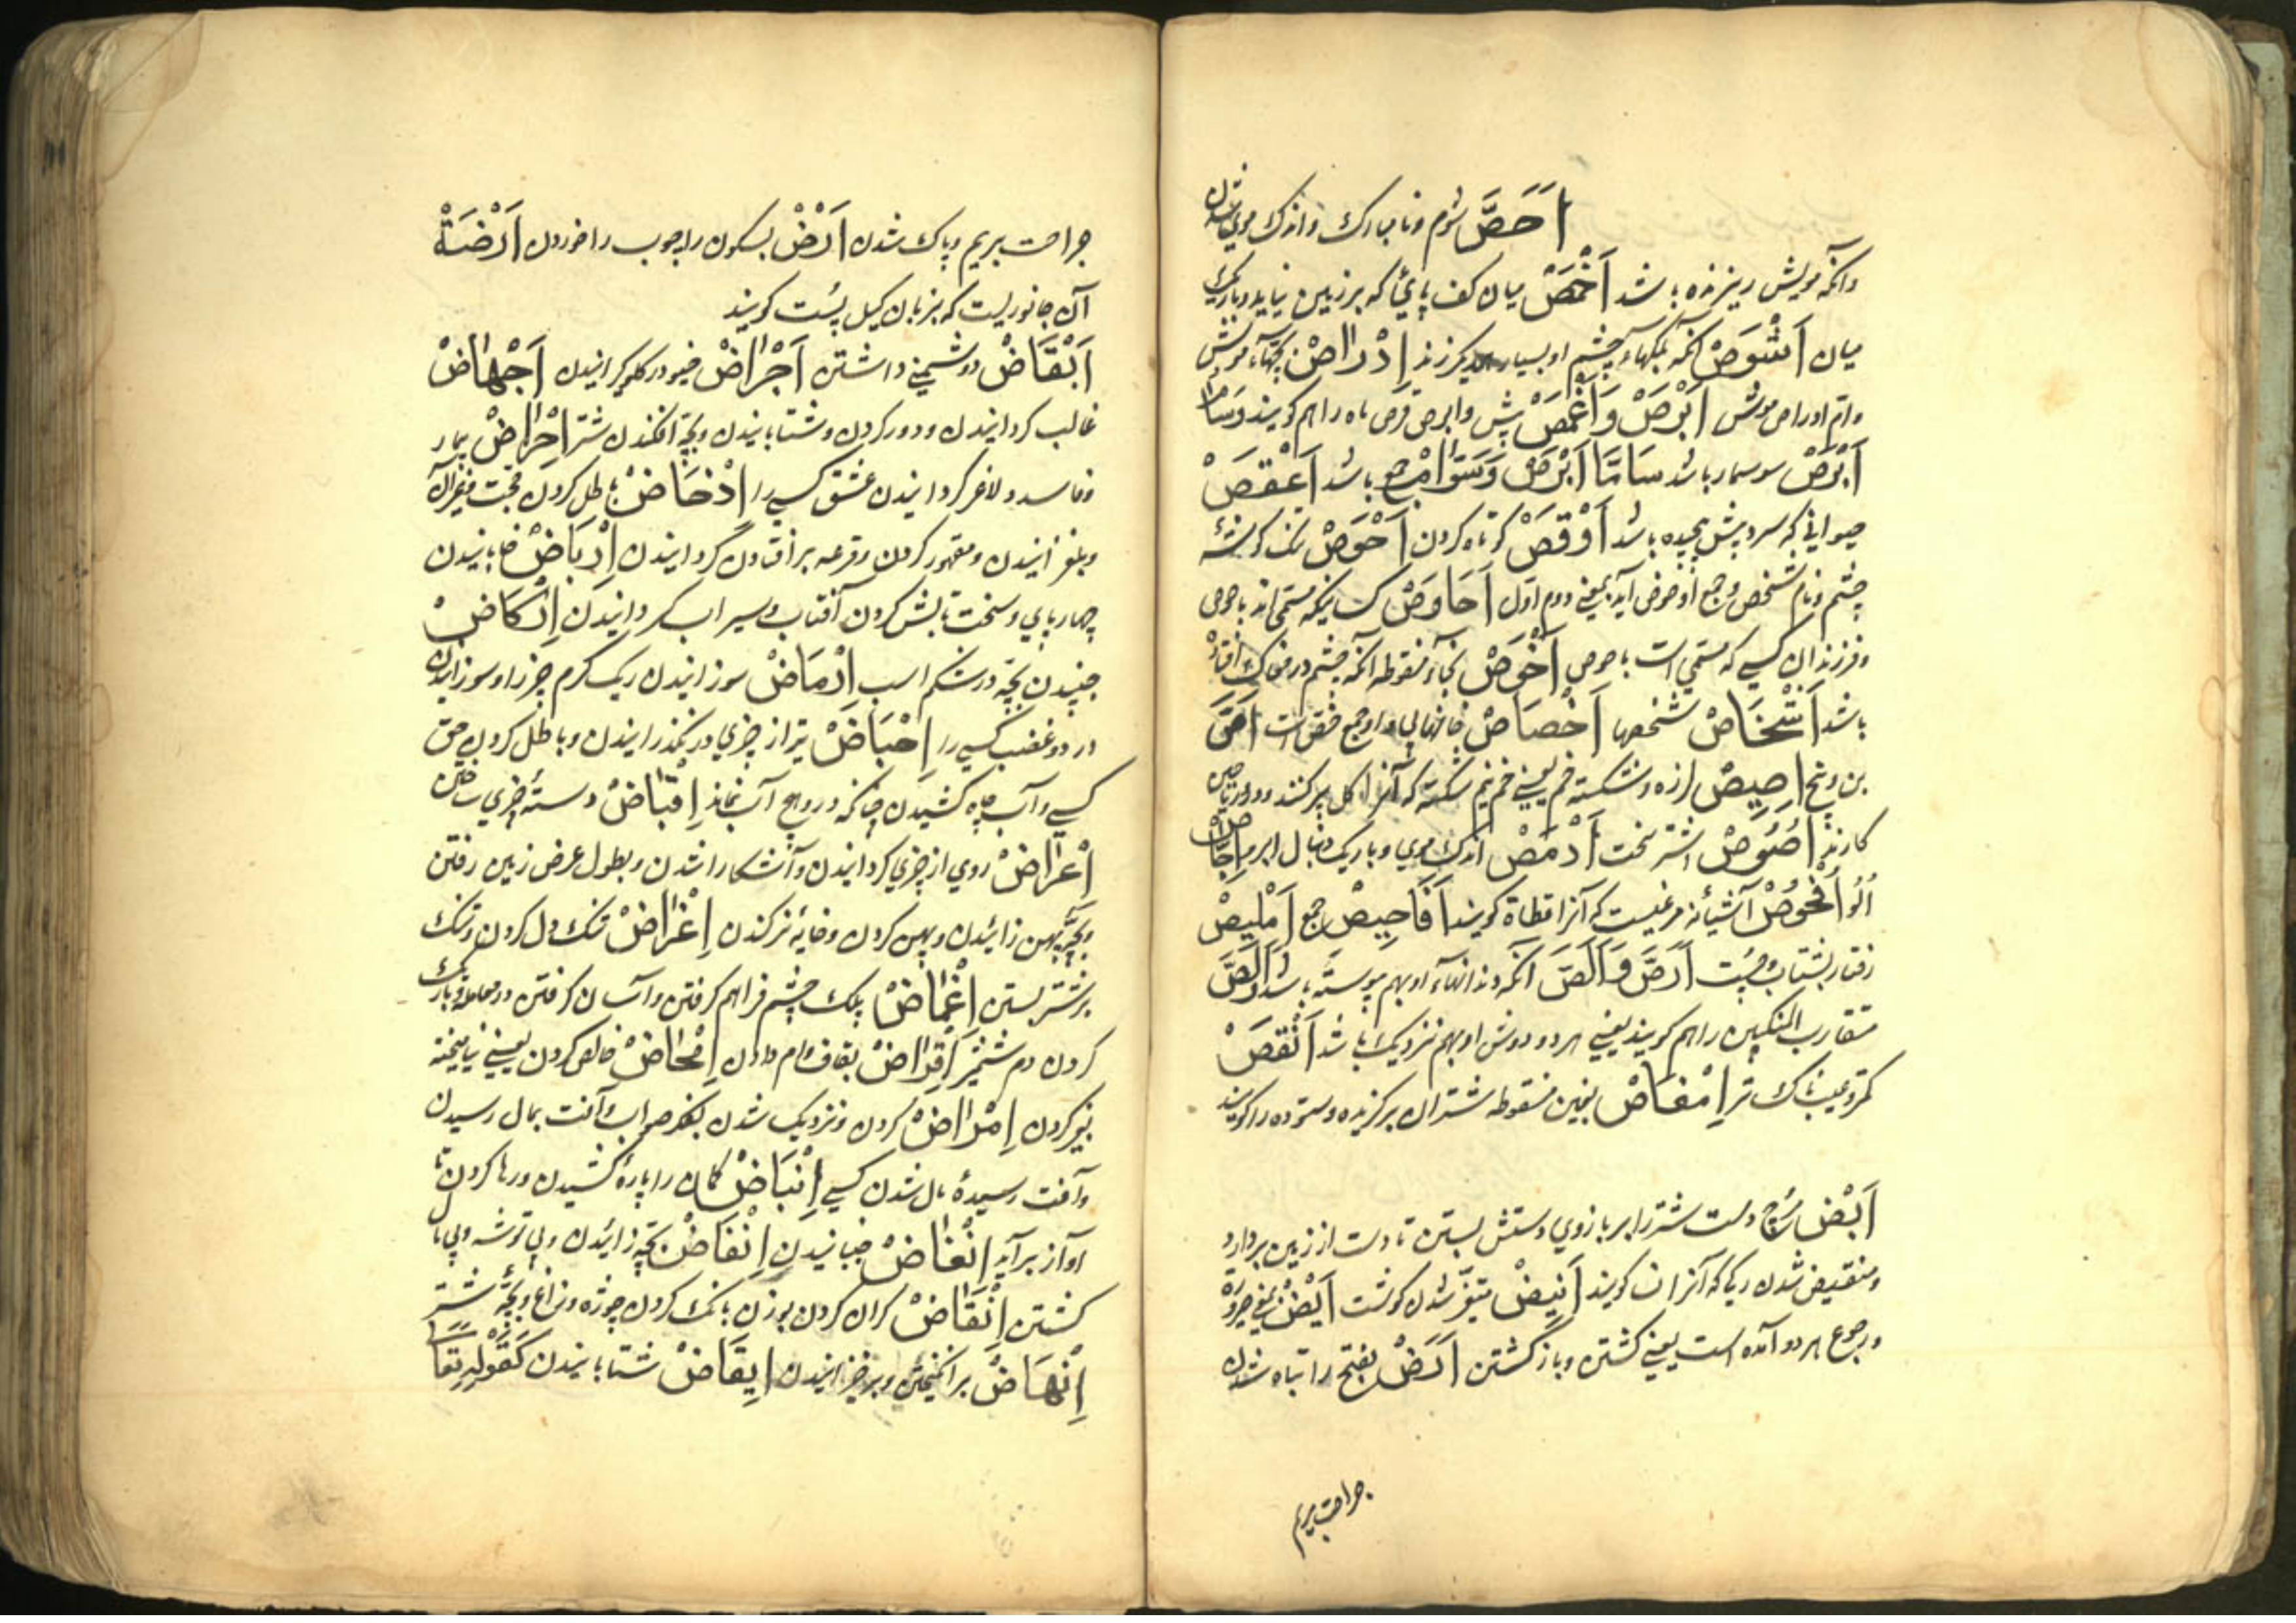 اَحَصَّ شوم و نا مبارک و اندک موی شدن
و آنکه مویش ریزنده باشد اَخْمَصْ میان کف پای که بر زمین نیاید و باریک
میان اَشْوَصْ آنکه پلکهاء چشم او بسیار اِدْرَاصْ بچهاء موش
واُم ادراص موش اَبْرَصْ وَ اَغْمَصْ پیش و ابرص قرص ماه را هم کویند وَسَامّ
اَبْرَصْ سوسمار باشد سَامَّا اَبْرَصْ وَسَوَامّ جمع باشد اَعْقَصْ
حیوانی که سرو پیش پیچیده باشد اَوْقَصْ کوتاه کردن اَحْوَصْ تنک کوشهٔ
چشم و نام شخص و جمع او حوص آید بمعنی دوم اول اَحَاوِصْ کسانیکه مسمی اند باحوص
و فرزندان کسی که مسمی است باحوص اَخْوَصْ بخاء منقوطه آنکه چشم در مغاک افتاده
باشد اَشْخَاصْ شخصها اَخْصَاصْ خانهای واو جمع خص است اَصَّ
بن و بیخ اَصِیصْ لرزه و شکسته خم یعنی خم نیم شکسته که آنرا کل پر کنند و دران ریاحین
کارند اَصُوصْ اشتر سخت اَدْمَصْ اندک موی و باریک دنبال ابرو اِجَّاصْ
آلو اُفْحُوصْ آشیانه مرغیست که آنرا قطاة کویند اَفَاحِیصْ جمع اِمْلِیصْ
رفتار بشتاب و چست اَرَصَّ وَاَلَصَّ آنکه دندانهاء او بهم پیوسته باشد وَاَلَصَّ
متقارب المنکبین را هم کویند یعنی هر دو دوش او بهم نزدیک باشد اَنْقَصْ
کمتر و عیب ناک تر اِمْغَاصْ بغین منقوطه شتران برکزیده و ستوده را کویند
اَبْضْ رسغ دست شتر را بر بازوی دستش بستن تا دست از زمین بردارد
و منقبض شدن رکی که آنرا نسا کویند اَنِیضْ متغیر شدن کوشت اَیْضْ یعنی صیرورة
و رجوع هر دو آمده است یعنی کشتن و بازکشتن اَرَضْ بفتح را تباه شدن
جراحت بریم
جراحت بریم و پاک شدن اَرْضْ بسکون را چوب را خوردن اَرْضَةْ
آن جانوریست که بزبان کیل پشت کویند
اَبْغَاضْ دشمنی داشتن اِجْرَاضْ خیو در کلو کیر انیدن اِجْهَاضْ
غالب کردانیدن و دور کردن و شتابانیدن و بچه افکندن شتر اِحْرَاضْ بیمار
و فاسد و لاغر کردانیدن عشق کسی را اِدْحَاضْ باطل کردن حجت
و بلغزانیدن و مقهور کردن و قرعه بر افتادن کردانیدن اِرْبَاضْ خابانیدن
چهارپای و سخت تابش کردن آفتاب و سیراب کردانیدن اِرْکَاضْ
جنبیدن بچه در شکم اسب اِرْمَاضْ سوزانیدن ریک کرم چیز را و سوزانیدن
درد و غضب کسی را اِحْبَاضْ تیر از چیزی در نکذرانیدن و باطل کردن حق
کسی و آب چاه کشیدن چنانکه درو هیچ آب نماند اِقْبَاضْ دستهٔ چیزی ساختن
اِعْرَاضْ روی از چیزی کردانیدن و آشکارا شدن و بطول و عرض زمین رفتن
و بچه پهن زائیدن و پهن کردن و خایه نر کندن اِغْرَاضْ تنک دل کردن و تنک
بر شتر بستن اِغْمَاضْ پلک چشم فراهم کرفتن و آسان کرفتن در معامله و باریک
کردن دم شمشیر اِقْرَاضْ بقاف وام دادن اِمْحَاضْ خالص کردن یعنی نیامیخته
نیز کردن اِمْرَاضْ کردن و نزدیک شدن بفکر صواب و آفت بمال رسیدن
و آفت رسیدهٔ مال شدن کسی اِنْبَاضْ کمان را پارهٔ کشیدن و رها کردن تا
آواز برآید اِنْغَاضْ جنبانیدن اِنْفَاضْ بچه زائیدن و بی توشه و بی مال
کشتن اِنْقَاضْ کران کردن بوزن بانک کردن چوژه و زاغ و بچهٔ شتر
اِنْهَاضْ برانکیختن و برخیزانیدن اِیفَاضْ شتابانیدن کَقَوْلِهِ تَعَالٰی